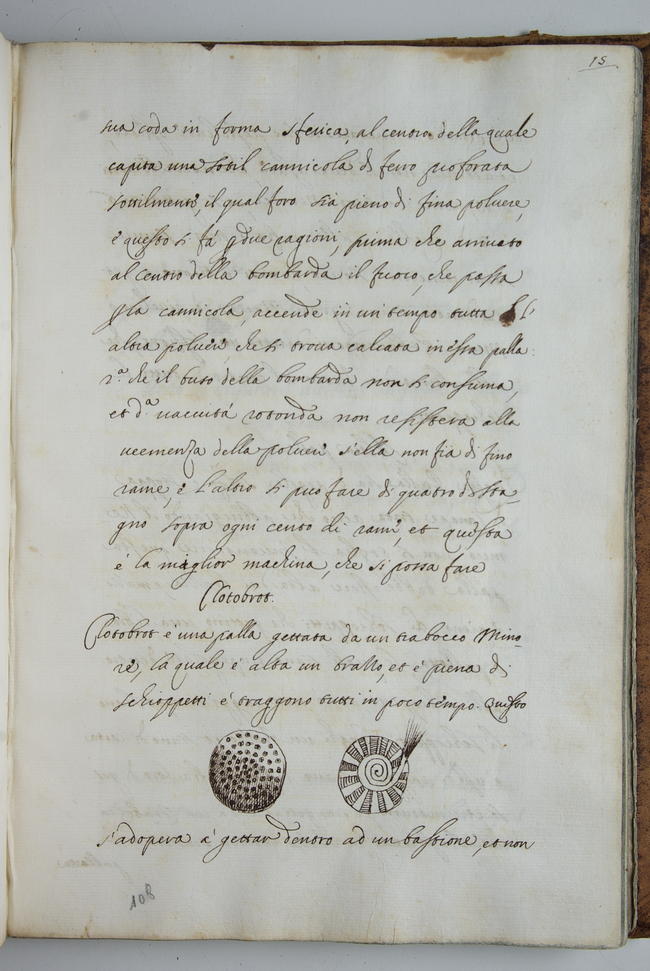 15
sua coda in forma sferica, al centro della quale
capita una sotil cannicola di ferro proforata
sottilmente, il qual foro sia pieno di fina poluere,
e questo si fà p due ragioni, prima che arriuato
al centro della bombarda il fuoco, che passa
p la cannicola, accende in un tempo tutta l'
altra poluere che si troua calcata in essa palla
2.ª che il buso della bombarda non si consuma,
et d.ª uacuità rotonda non resistera alla
ueemenza della poluere s'ella non fia di fino
rame, e l'altro si puo fare di quatro di sta-
gno sopra ogni cento di rame, et questa
è la miglior machina, che si possa fare
Clotobrot.
Clotobrot è una palla gettata da un trabocco Mino-
re, la quale è alta un brasso, et è piena di
schioppetti e traggono tutti in poco tempo. Questo
s'adopera a gettar dentro ad un bastione, et non
108